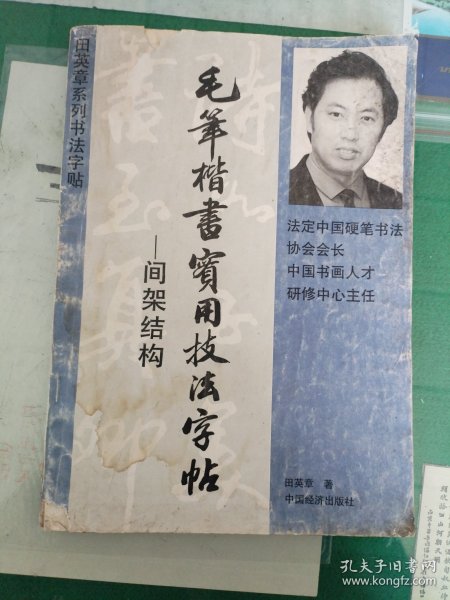 田英章系列书法字帖
毛筆楷書實用技法字帖
—间架结构
法定中国硬笔书法
协会会长
中国书画人才
研修中心主任
田英章 著
中国经济出版社
孔夫子旧书网
www.kongfz.com